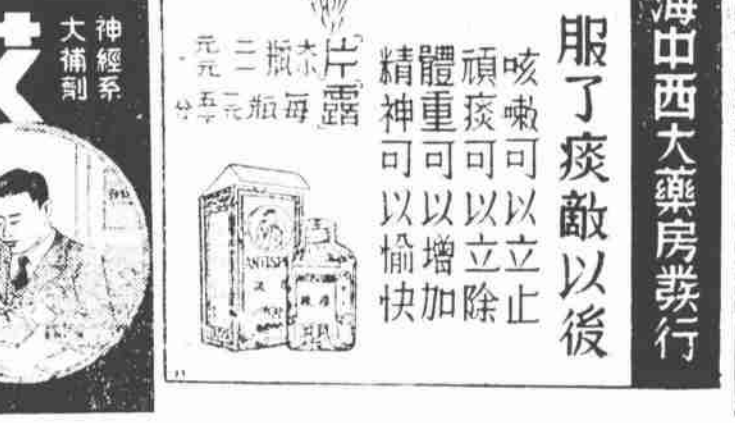 海中西大藥房發行
服了痰敵以後
咳嗽可以立止
頑痰可以立除
體重可以增加
精神可以愉快
露
每瓶
片
大小瓶
二元
一元
神經系
大補劑